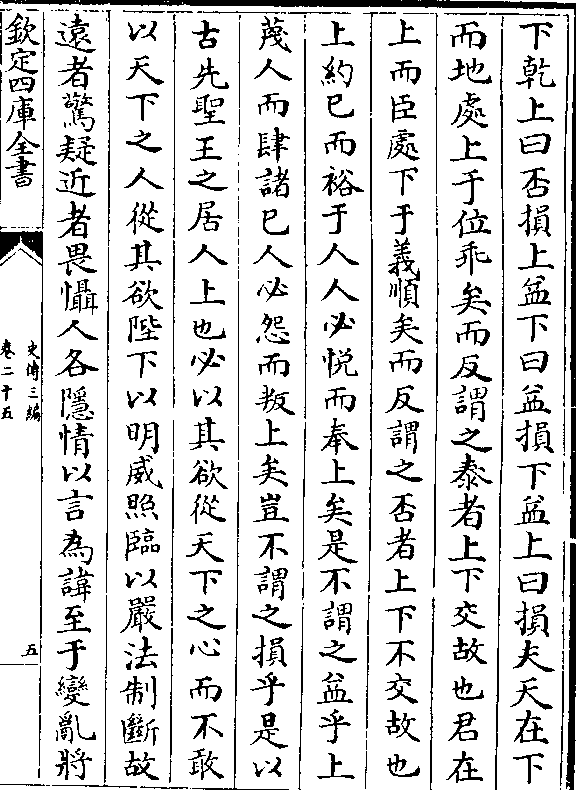 下乾上曰否損上益下曰益損下益上曰損夫天在下
而地處上于位乖矣而反謂之泰者上下交故也君在
上而臣處下于義順矣而反謂之否者上下不交故也
上約已而裕于人人必悦而奉上矣是不謂之益乎上
蔑人而肆諸已人必怨而叛上矣豈不謂之損乎是以
古先聖王之居人上也必以其欲從天下之心而不敢
以天下之人從其欲陛下以明威照臨以嚴法制斷故
遠者驚疑近者畏懾人各隱情以言為諱至于變亂將
欽定四庫全書
史傳三編
卷二十五
五